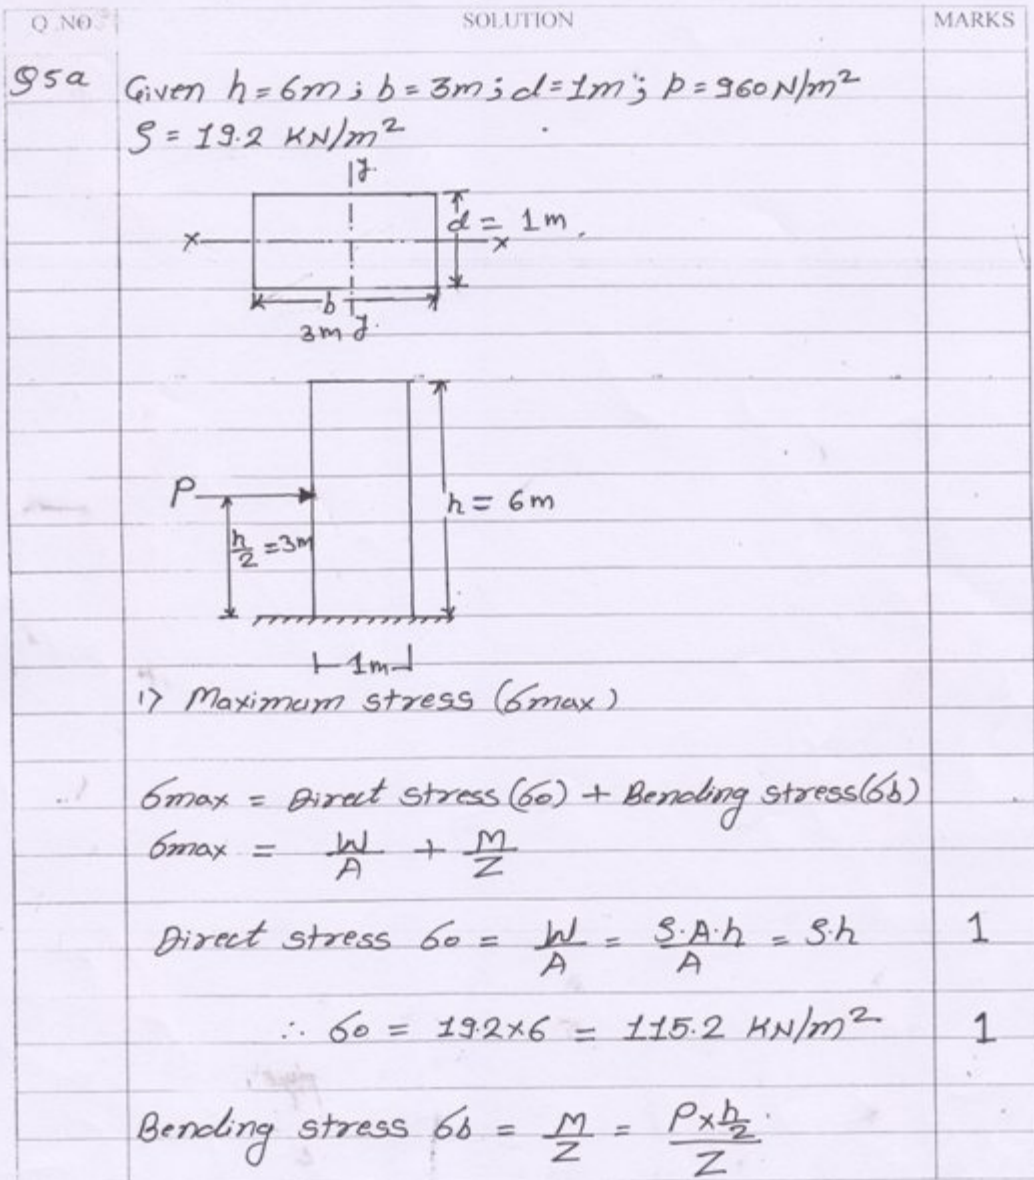 Q.NO SOLUTION MARKS
Q5a Given h = 6m ; b = 3m ; d = 1m ; p = 960 N/m²
ρ = 19.2 KN/m²
y
d = 1m
x x
b
3m y
P
h = 6m
h/2 = 3m
1m
1) Maximum stress (σmax)
σmax = Direct stress (σo) + Bending stress (σb)
σmax = W/A + M/Z
Direct stress σo = W/A = ρ.A.h/A = ρ.h 1
∴ σo = 19.2×6 = 115.2 KN/m² 1
Bending stress σb = M/Z = P×h/2 / Z